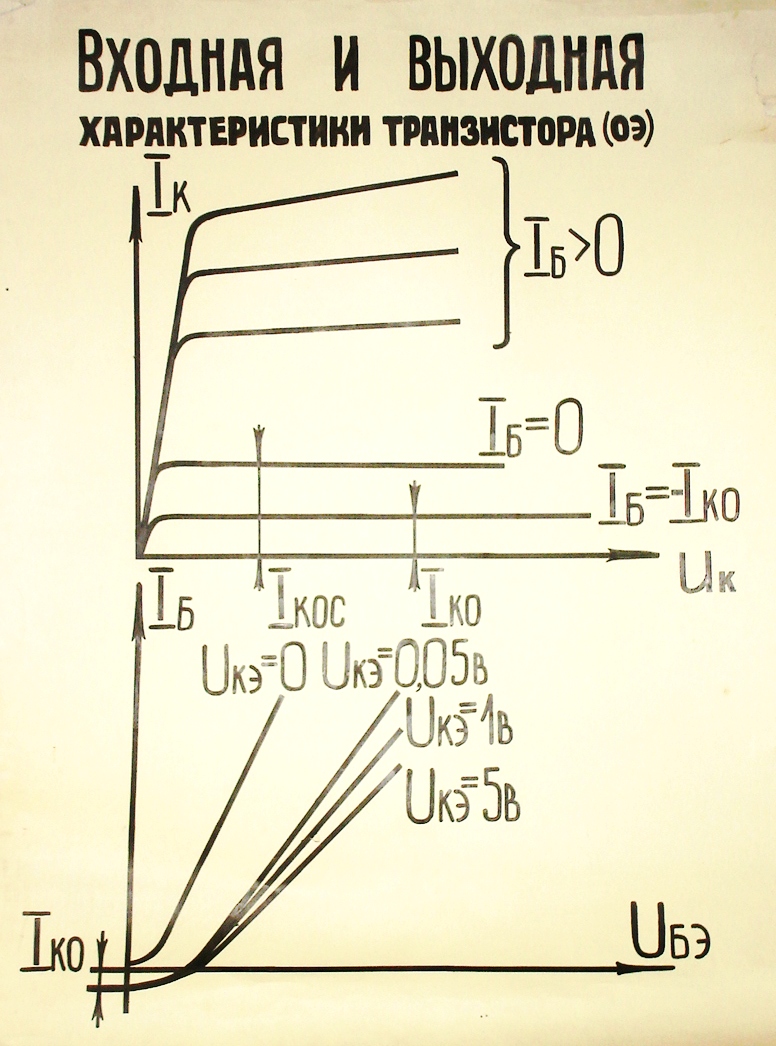 Входная и выходная
характеристики транзистора (оэ)
Iк
Iб>0
Iб=0
Iб=-Iко
Uк
Iкос
Iко
Iб
Uкэ=0 Uкэ=0,05в
Uкэ=1в
Uкэ=5в
Iко
Uбэ